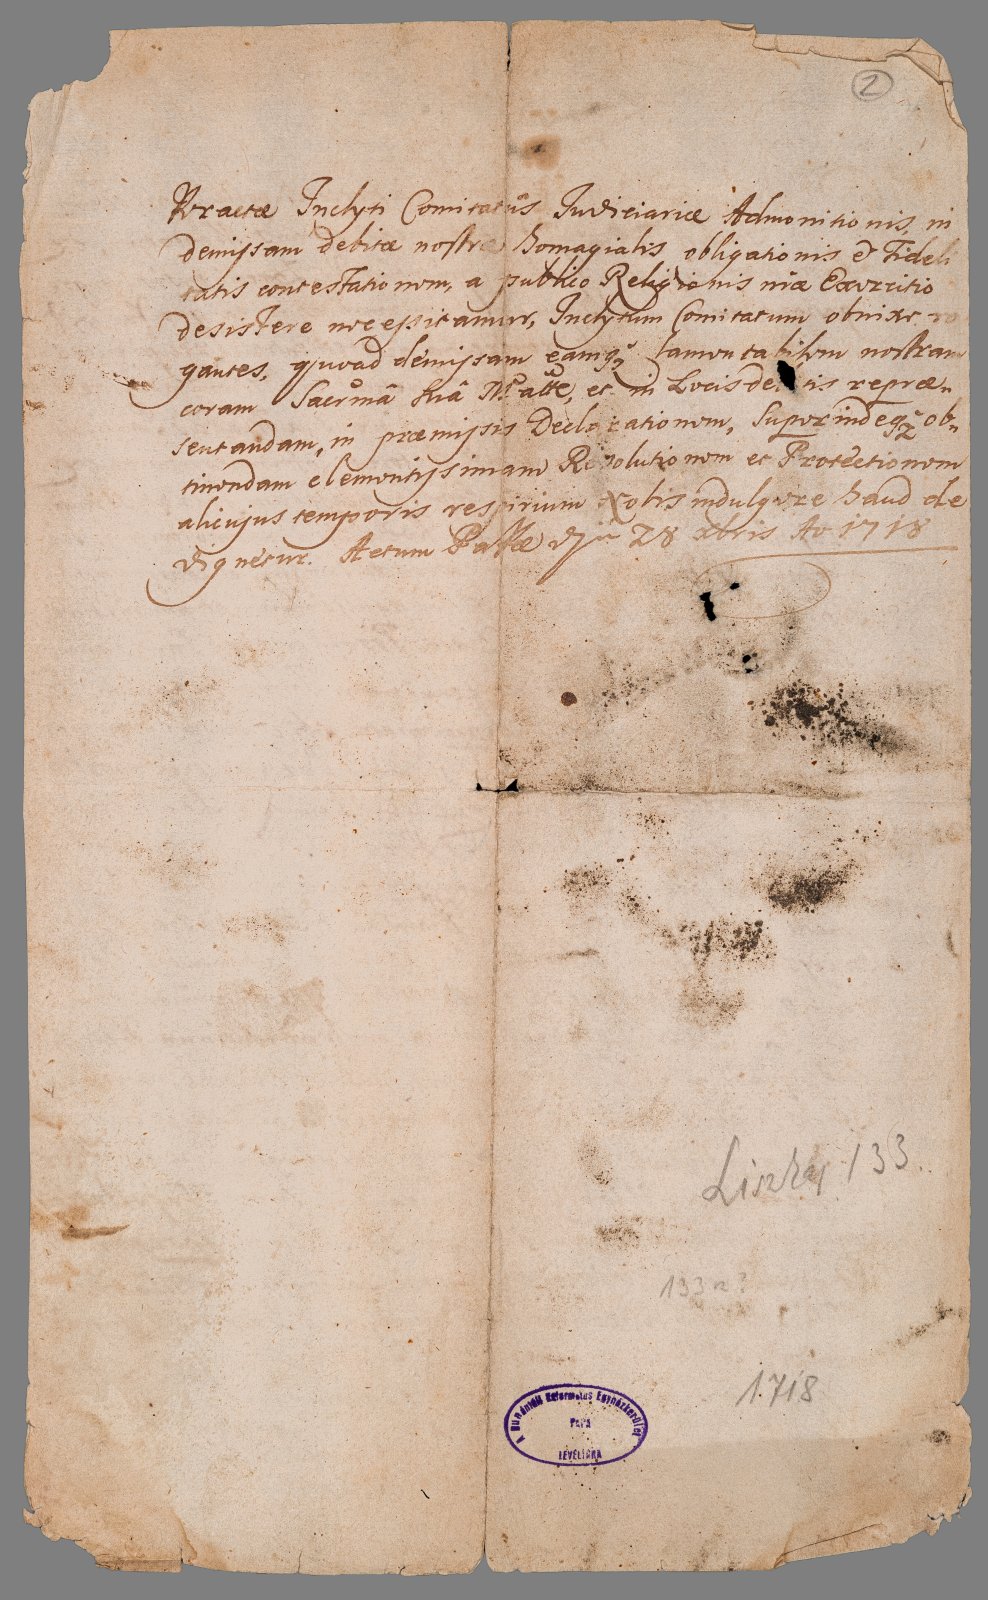 2
Peractae Inclyti Comitatûs Judiciariae Admonitionis, in
demissam debitae nostrae homagialis obligationis & Fideli
tatis contestationem, a publico Religionis nrae Exercitio
desistere necessitamur, Inclytum Comitatum obnixe ro
gantes, quoad demissam eamq; lamentabilem nostram
coram Sacrmâ Riâ Mtte, et in Locis debitis reprae-
sentandam, in praemissis Declarationem, Superindeq; ob-
tinendam clementissimam Resolutionem et Protectionem
alicujus temporis respirium Nobis indulgere haud de
dignetur. Actum Papae die 28 xbris Ao 1718
Liszkay 133.
133 a?
1718
A Dunántúli Református Egyházkerület
PÁPA
LEVÉLTÁRA